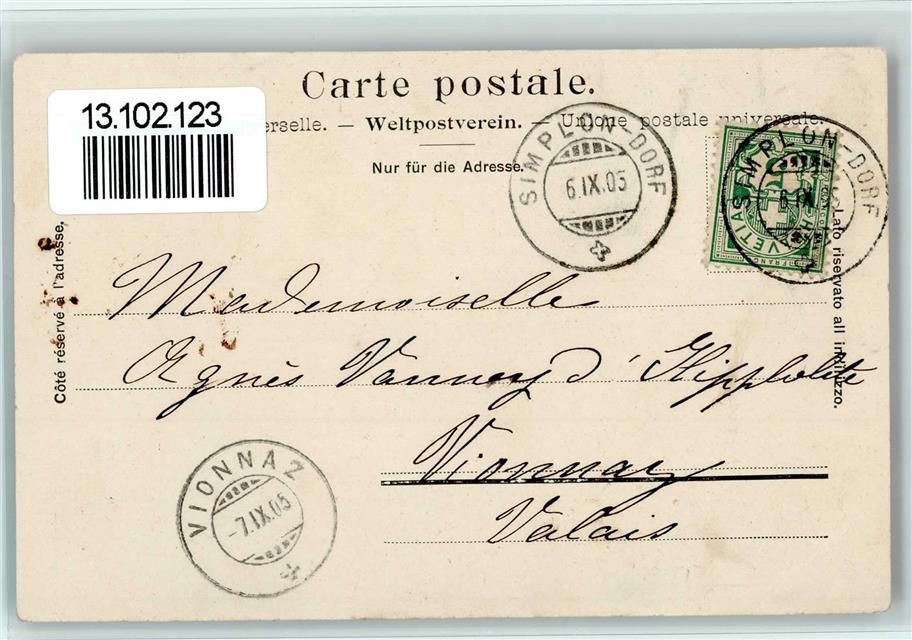 Carte postale.
13.102.123
erselle. — Weltpostverein. — Unione postale universale.
Nur für die Adresse.
SIMPLON-DORF
6.IX.05
SIMPLON-DORF
6.IX
HELVETIA
FRANCO
Côté réservé à l'adresse.
Lato riservato all indirizzo.
Mademoiselle
Agnès Vannay d'Hippolite
Vionnaz
Valais
VIONNAZ
-7.IX.05